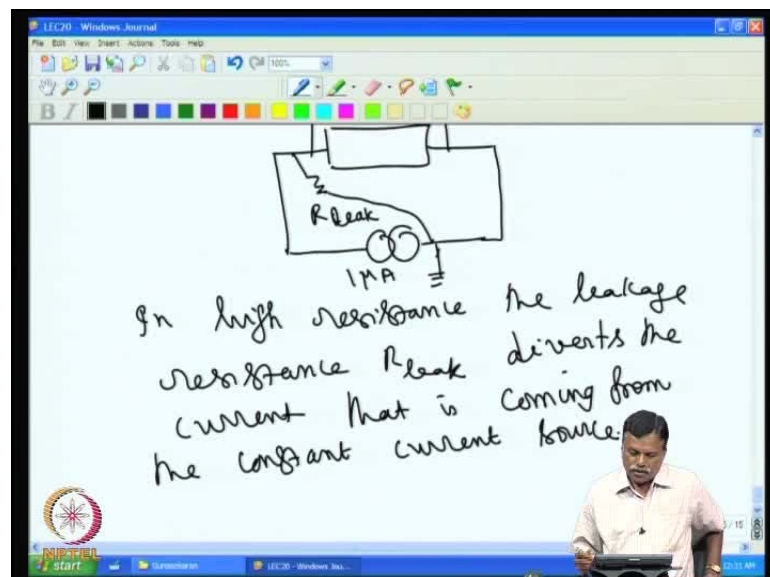 LEC20 - Windows Journal
File Edit View Insert Actions Tools Help
100%
B I
R leak
1 μA
In high resistance the leakage
resistance R leak diverts the
current that is coming from
the constant current source.
/ 15
NPTEL
start
LEC20 - Windows Jou...
12:31 AM